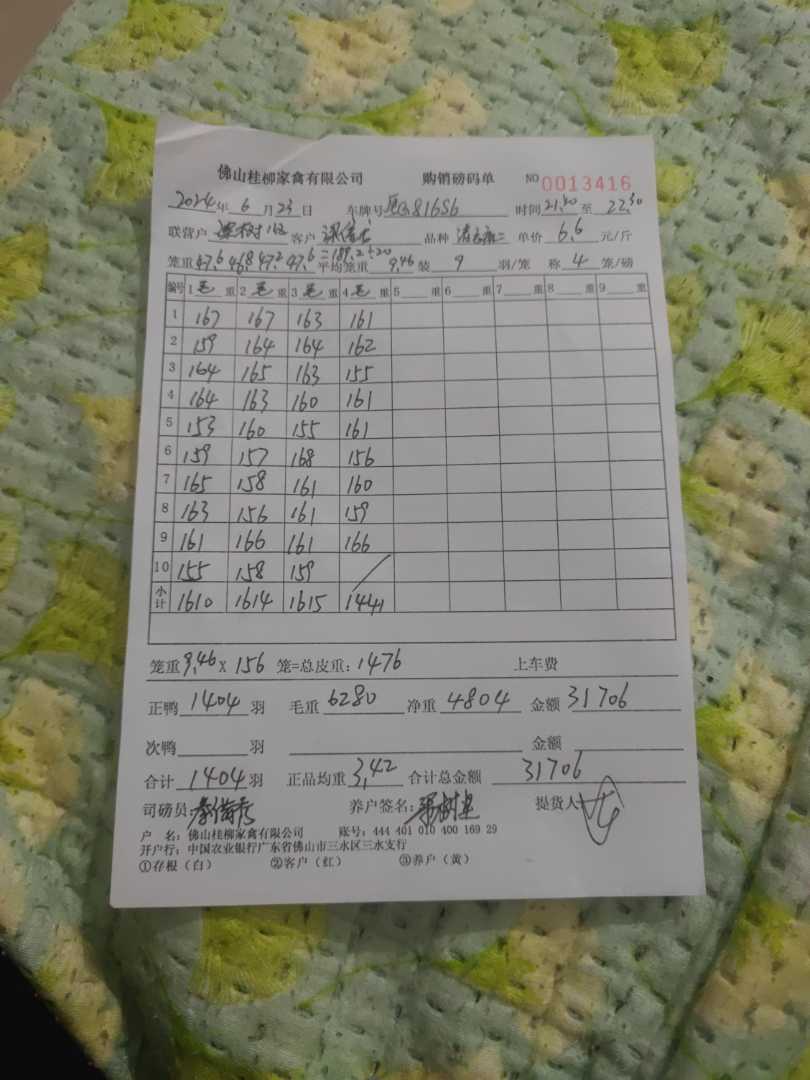 佛山桂柳家禽有限公司 购销磅码单 NO 0013416
2024年6月23日 车牌号 81656 时间21:30至22:30
联营户 客户 品种 单价 6.6 元/斤
笼重47.6 46.8 47.2 47.6=189.2÷20 平均笼重 9.46 装 9 羽/笼 称 4 笼/磅
编号 1毛重 2毛重 3毛重 4毛重 5 重 6 重 7 重 8 重 9 重
1 167 167 163 161
2 159 164 164 162
3 164 165 163 155
4 164 163 160 161
5 153 160 155 161
6 159 157 168 156
7 165 158 161 160
8 163 156 161 159
9 161 166 161 166
10 155 158 159
小计 1610 1614 1615 1441
笼重9.46×156笼=总皮重:1476 上车费
正鸭1404羽 毛重6280 净重4804 金额31706
次鸭 羽 金额
合计1404羽 正品均重3.42 合计总金额 31706
司磅员 养户签名: 提货人
户 名:佛山桂柳家禽有限公司 账号:444 401 010 400 169 29
开户行:中国农业银行广东省佛山市三水区三水支行
①存根(白) ②客户(红) ③养户(黄)